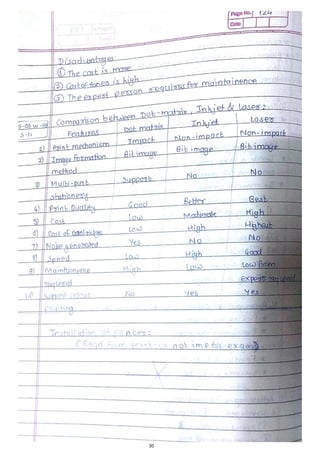 Page No. 124
Date
Disadvantages
① The cost is more
② Cost of toner is high
③ The expert person required for maintainence
Comparison between Dot-matrix, Inkjet & laser:
S-09 W-09
S-11
Features Dot matrix Inkjet Laser
1) Print mechanism Impact Non-impact Non-impact
2) Image formation method Bit image Bit image Bit image
3) Multi-part stationery Support No No
4) Print Quality Good Better Best
5) Cost Low Moderate High
6) Cost of cartridge Low High Highest
7) Noise generated Yes No No
8) Speed Low High Good
9) Maintainence required High Low Low from expert required
10) Support colour printing No Yes Yes
Installation of Printer:
(Read from not imp for exam)
95